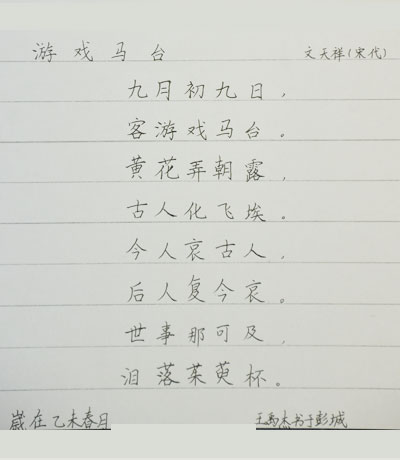 游戏马台 文天祥(宋代)
九月初九日，
客游戏马台。
黄花弄朝露，
古人化飞埃。
今人哀古人，
后人复今哀。
世事那可及，
泪落茱萸杯。
嵗在乙未春月 王禹杰书于彭城